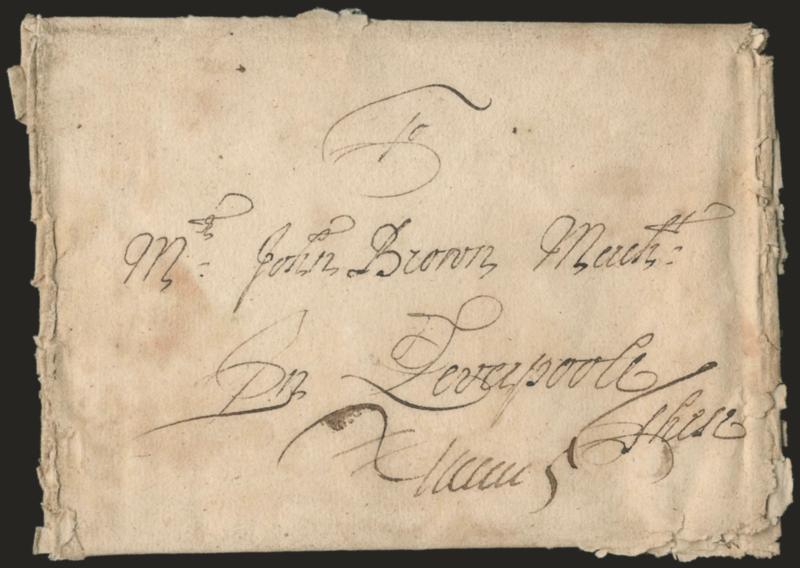 To
Mr John Brown Mercht
In Leverpoole
these